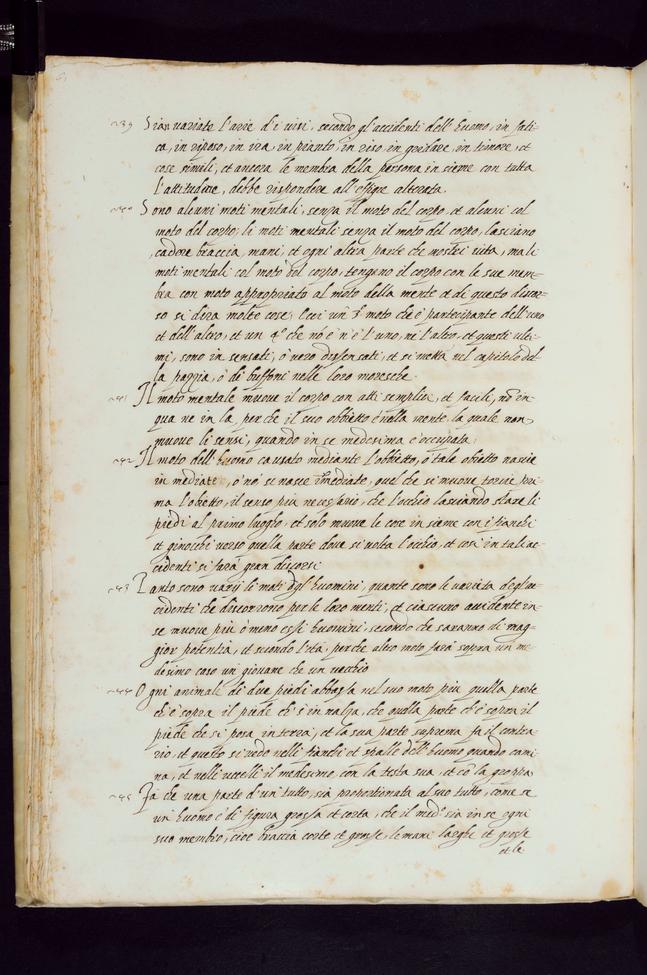 239 Sian variate l'arie d'i visi, secondo gl'accidenti dell'huomo, in fati-
ca, in riposo, in ira, in pianto, in riso, in gridare, in timore, et
cose simili, et ancora le membra della persona in sieme con tutta
l'attitudine, debbe rispondere all'effigie alterata.
240 Sono alcuni moti mentali, senza il moto del corpo, et alcuni col
moto del corpo; li moti mentali senza il moto del corpo, lasciano
cadere braccia, mani, et ogni altra parte che mostri vita, ma li
moti mentali col moto del corpo, tengono il corpo con le sue mem-
bra con moto appropriato al moto della mente et di questo discor-
so si dira molte cose; Ecci un 3º moto che è partecipante dell'uno
et dell'altro, et un 4º che nó è n'è l'uno, ne l'altro, et questi ulti-
mi, sono in sensati, ò vero disensati, et si metta nel capitolo del
la pazzia, ò di buffoni nelle loro moresche.
241 Il moto mentale muove il corpo con atti semplici, et facili, nó in
qua ne in la, perche il suo obbietto è nella mente la quale non
muove li sensi, quando in se medesima è occupata.
242 Il moto dell'huomo causato mediante l'obbietto, ò tale obietto nascie
in mediate, ò nó se nascie immediato, quel che si muove torcie pri
ma l'obietto, il senso più necessario, che l'occhio lasciando stare li
piedi al primo luogho, et solo muove le cose in sieme con i fianchi
et ginocchi verso quella parte dove si volta l'occhio, et cosi in tali ac
cidenti si farà gran discorsi
243 Tanto sono varij li moti degl'huomini, quante sono le varietà degl'ac
cidenti che discorrono per le loro menti, et ciascuno accidente in
se muove più ò meno essi huomini, secondo che saranno di mag-
gior potentia, et secondo l'età, perche altro moto farà sopra un me-
desimo caso un giovane che un vecchio
244 Ogni animale di due piedi abbassa nel suo moto più quella parte
ch'è sopra il piede ch's'in nalza, che quella parte ch'è sopra il
piede che si posa in terra, et la sua parte suprema fa il contra
rio, et questo si vede nelli fianchi et spalle dell'huomo quando cami
na, et nelli uccelli il medesimo con la testa sua, et có la groppa.
245 Fà che una parte d'un tutto, sia proportionata al suo tutto, come se
un huomo è di figura grossa et corta, che il medº sia in se ogni
suo membro, cioe braccia corte et grosse, le mani larghe et grosse
et le